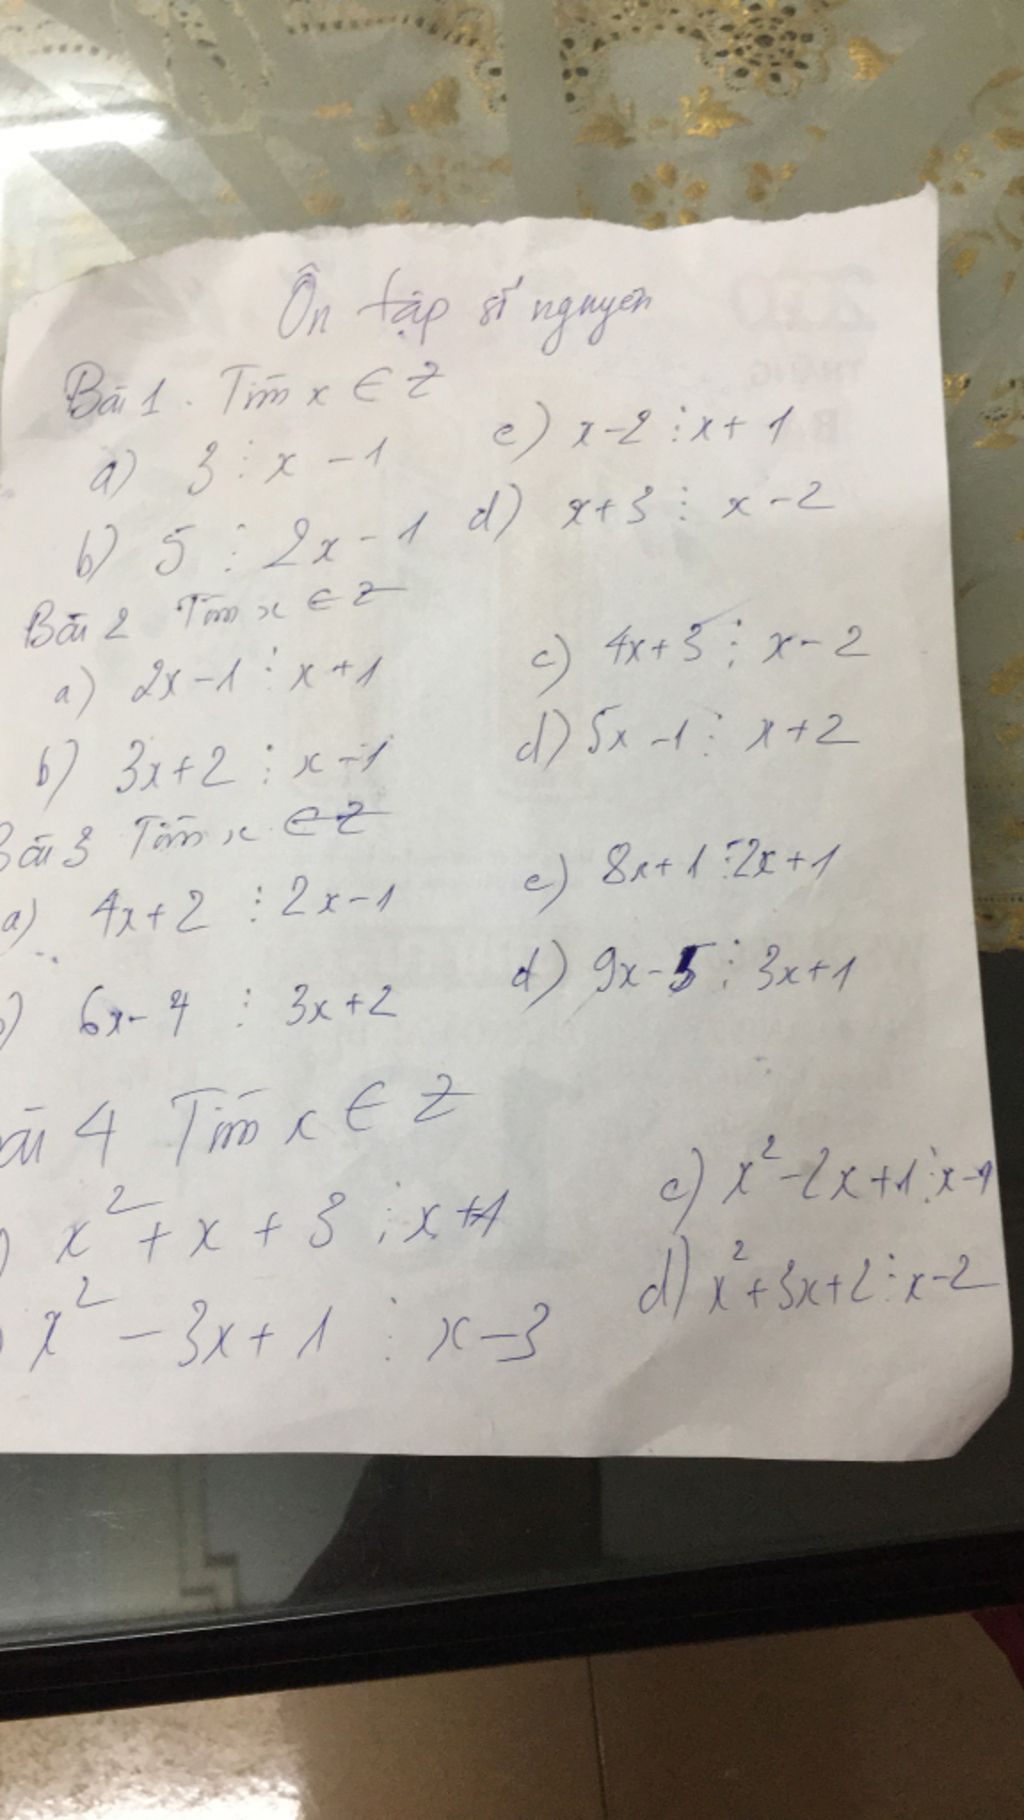 Ôn tập số nguyên
Bài 1. Tìm x ∈ Z
a) 3 ⋮ x - 1
c) x-2 ⋮ x+1
b) 5 ⋮ 2x - 1
d) x+3 ⋮ x - 2
Bài 2 Tìm x ∈ Z
a) 2x-1 ⋮ x+1
c) 4x+3 ⋮ x-2
b) 3x+2 ⋮ x-1
d) 5x-1 ⋮ x+2
Bài 3 Tìm x ∈ Z
a) 4x+2 ⋮ 2x-1
c) 8x+1 ⋮ 2x+1
) 6x-4 ⋮ 3x+2
d) 9x-5 ⋮ 3x+1
ài 4 Tìm x ∈ Z
) x² + x + 3 ⋮ x+1
c) x²-2x+1 ⋮ x-1
) x² - 3x+1 ⋮ x-3
d) x²+3x+2 ⋮ x-2